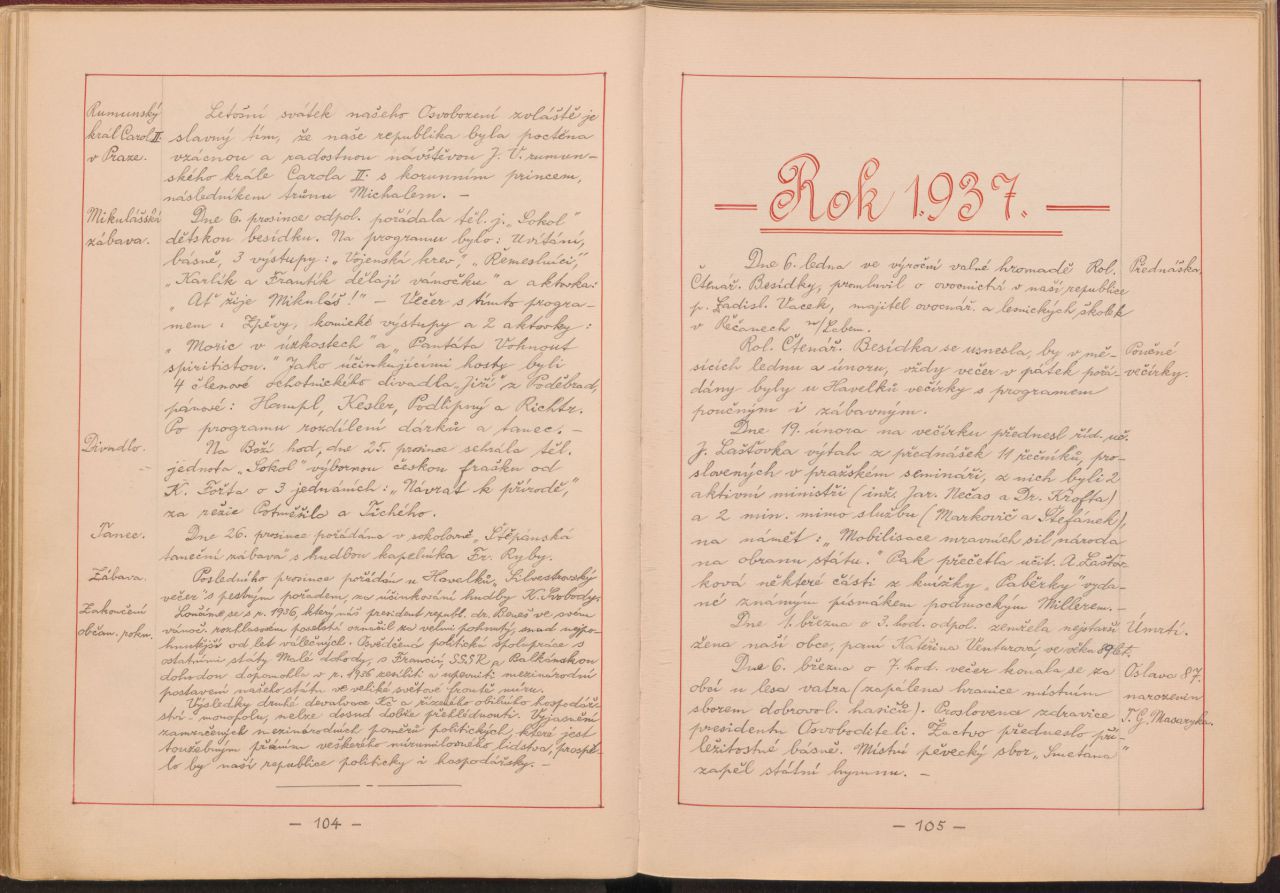 Rumunský
král Carol II.
v Praze.
Letošní svátek našeho Osvobození zvláště je
slavný tím, že naše republika byla poctěna
vzácnou a radostnou návštěvou J. V. rumun-
ského krále Carola II. s korunním princem,
následníkem trůnu Michalem. —
Mikulášská
zábava.
Dne 6. prosince odpol. pořádala těl. j. „Sokol"
dětskou besídku. Na programu bylo: Uvítání,
básně, 3 výstupy: „Vojenská krev," „Řemeslníci,"
„Karlík a Frantík dělají vánočku" a aktovka:
„Ať žije Mikuláš!" — Večer s tímto progra-
mem: Zpěvy, komické výstupy a 2 aktovky:
„Moric v úzkostech" a „Pantáta Vohnout
spiritistou." Jako účinkujícími hosty byli
4 členové ochotnického divadla „Jiří" z Poděbrad,
pánové: Hampl, Kesler, Podlipný a Richtr.
Po programu rozdílení dárků a tanec. —
Divadlo.
Na Boží hod, dne 25. prosince sehrála těl.
jednota „Sokol" výbornou českou frašku od
K. Fořta o 3 jednáních: „Návrat k přírodě,"
za režie Potměšila a Tichého.
Tanec.
Dne 26. prosince pořádána v sokolovně „Štěpánská
taneční zábava" s hudbou kapelníka Fr. Ryby.
Zábava.
Posledního prosince pořádán u Havelků „Silvestrovský
večer" s pestrým pořadem, za účinkování hudby K. Svobody.
Zakončení
občan. roku.
Loučíme se s r. 1936, který náš president republ. dr. Beneš ve svém
vánoč. rozhlasovém poselství označil za velmi pohnutý, snad nejpo-
hnutější od let válečných. Osvědčená politická spolupráce s
ostatními státy Malé dohody, s Francií, SSSR a Balkánskou
dohodou dopomohla v r. 1936 zesíliti a upevniti mezinárodní
postavení našeho státu ve veliké světové frontě míru.
Výsledky druhé devalvace Kč a řízeného obilního hospodář-
ství - monopolu, nelze dosud dobře přehlédnouti. Vyjasnění
zamračených mezinárodních poměrů politických, které jest
touženým přáním veškerého mírumilovného lidstva, prospě-
lo by naší republice politicky i hospodářsky. —
— 104 —
— Rok 1937. —
Dne 6. ledna ve výroční valné hromadě Rol.
Čtenář. Besídky, promluvil o ovocnictví v naší republice
p. Ladisl. Vacek, majitel ovocnář. a lesnických školek
v Řečanech n/Labem.
Přednáška.
Rol. Čtenář. Besídka se usnesla, by v mě-
sících lednu a únoru, vždy večer v pátek pořá-
dány byly u Havelků večírky s programem
poučným i zábavným.
Poučné
večírky.
Dne 19. února na večírku přednesl říd. uč.
J. Lašťovka výtah z přednášek 11 řečníků, pro-
slovených v pražském semináři, z nich byli 2
aktivní ministři (inž. Jar. Nečas a Dr. Krofta)
a 2 min. mimo službu (Markovič a Štefánek),
na námět: „Mobilisace mravních sil národa
na obranu státu." Pak přečetla učit. A. Lašťov-
ková některé části z knížky „Paběrky" vyda-
né známým písmákem podmockým Millerem. —
Dne 1. března o 3. hod. odpol. zemřela nejstarší
žena naší obce, paní Kateřina Venturová ve věku 89 let.
Úmrtí.
Dne 6. března o 7. hod. večer konala se za
obcí u lesa vatra (zapálena hranice místním
sborem dobrovol. hasičů). Proslovena zdravice
presidentu Osvoboditeli. Žactvo předneslo pří-
ležitostné básně. Místní pěvecký sbor „Smetana"
zapěl státní hymnu. —
Oslava 87.
narozenin
T. G. Masaryka.
— 105 —